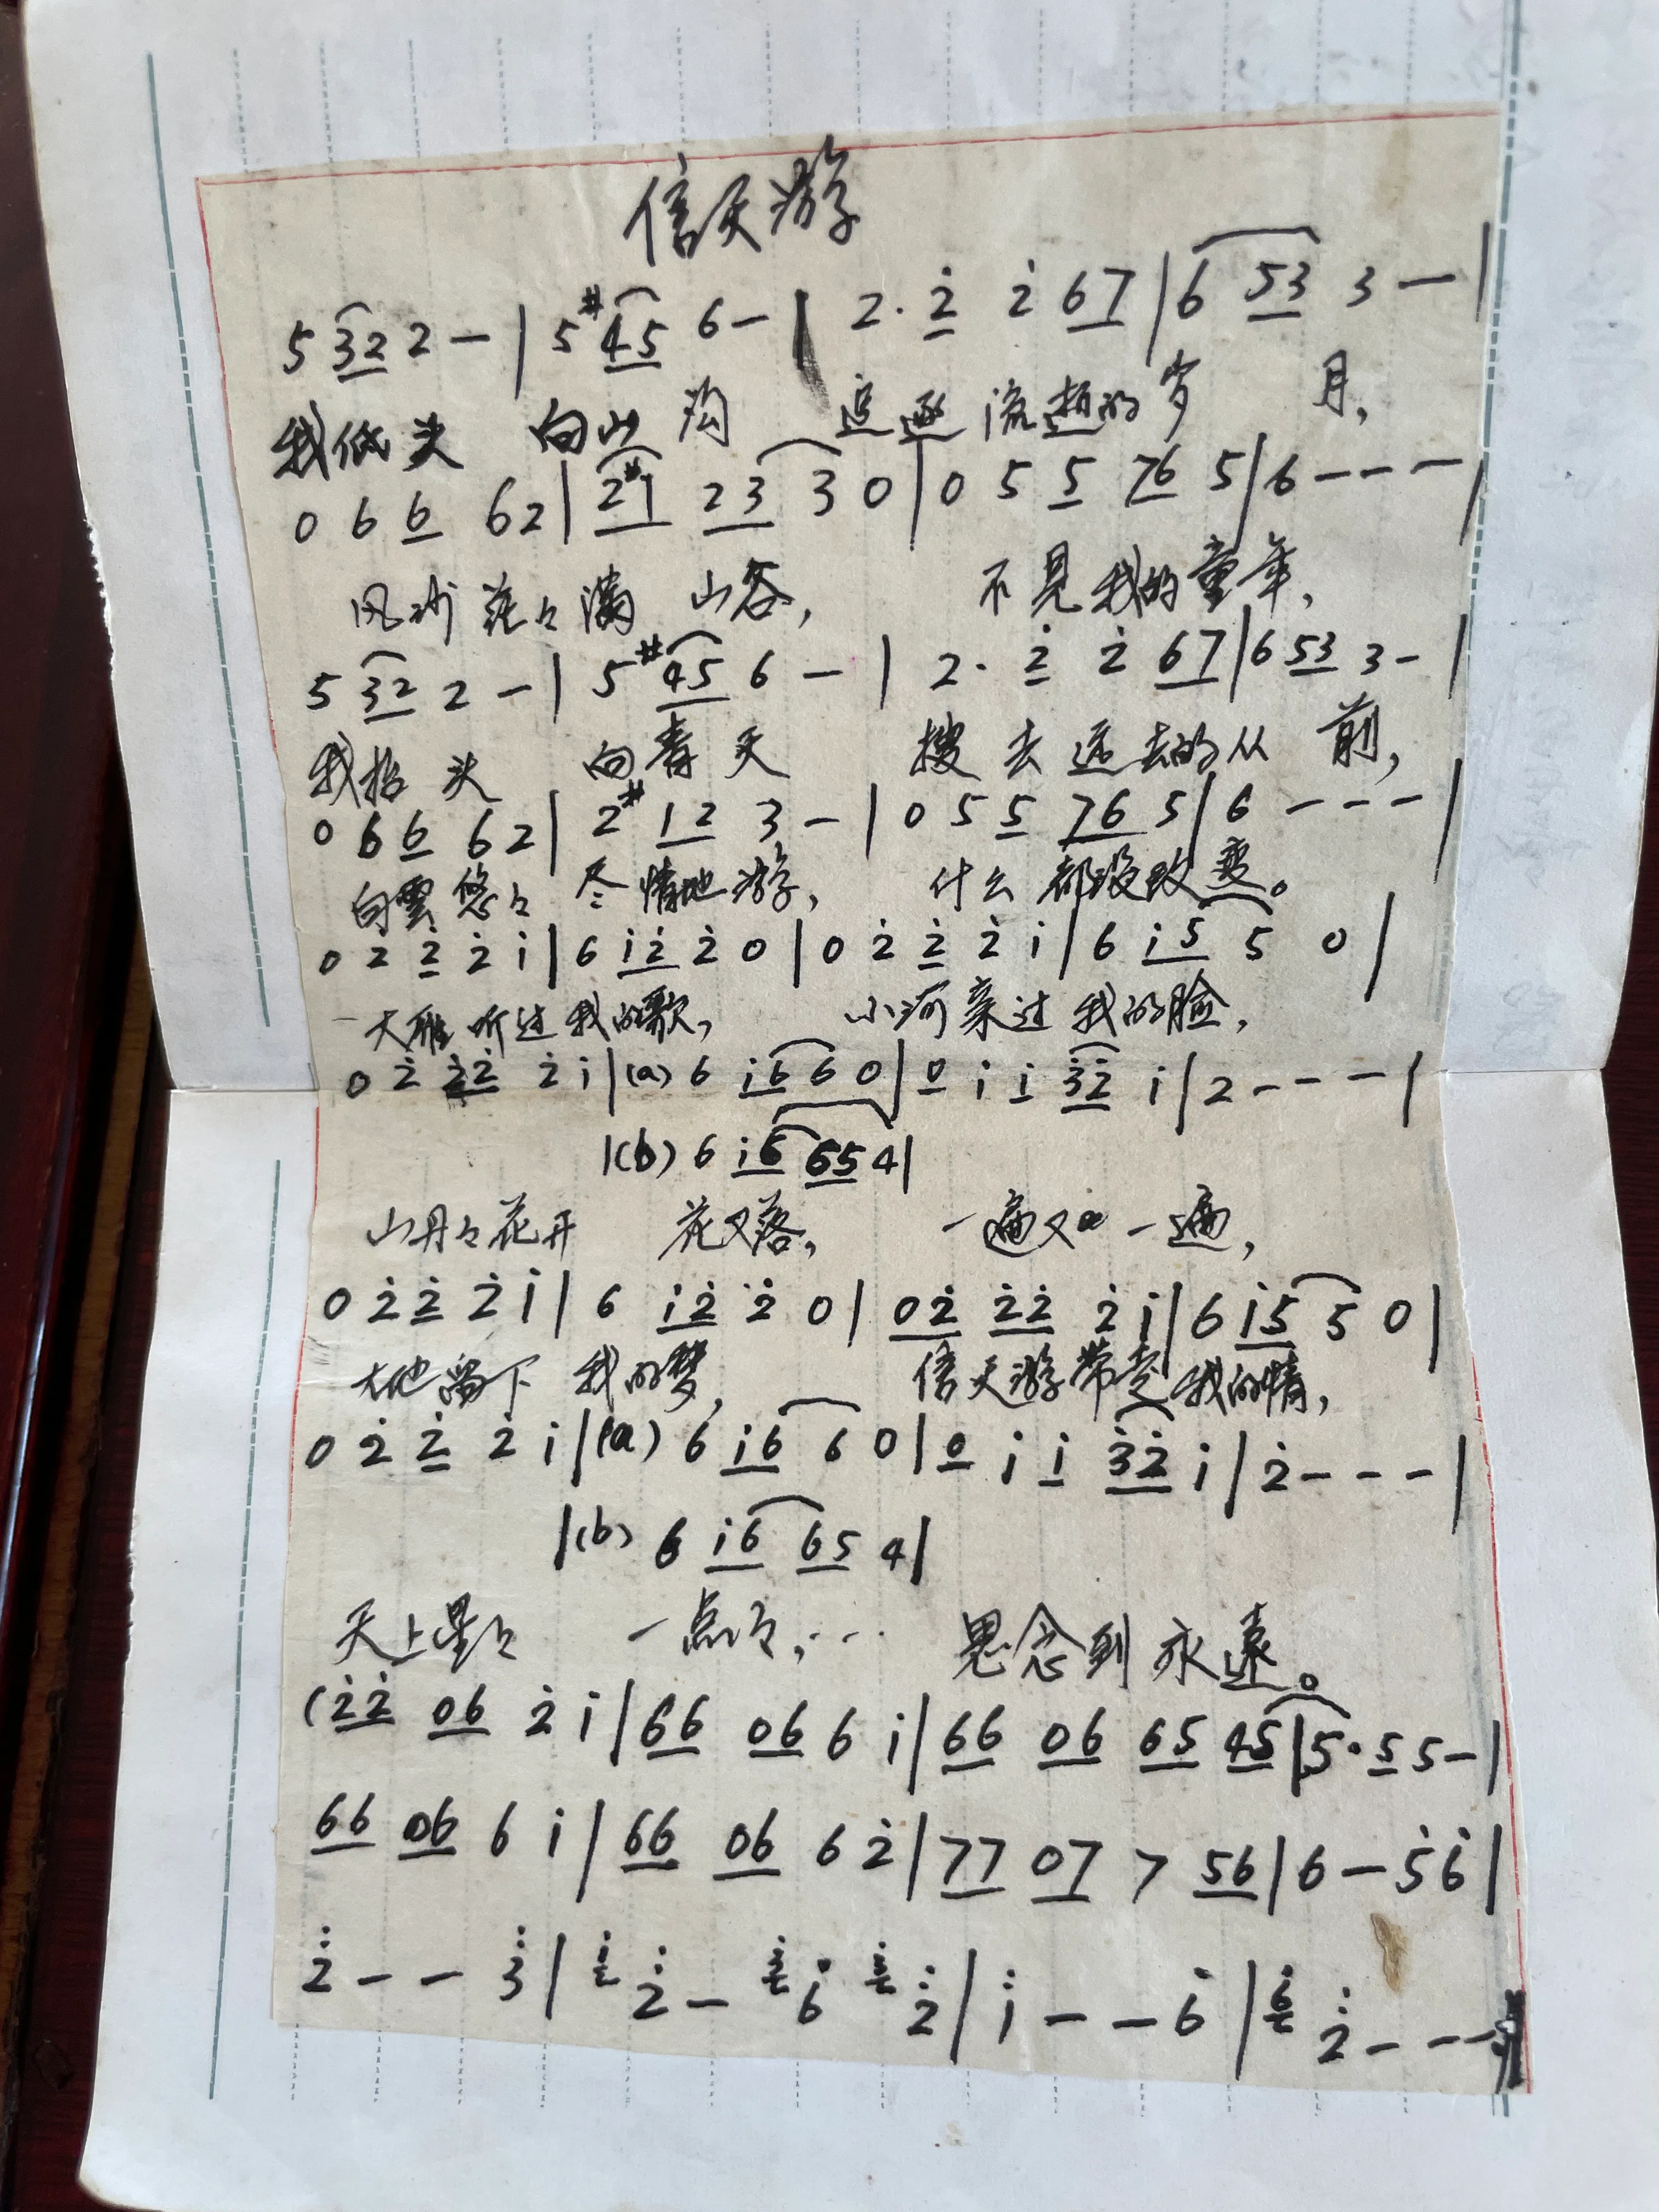 信天游
5 3 2 2 — | 5 #4 5 6 — | 2· 2̇ 2̇ 6 7 | 6 5 3 3 — |
我低头 向山沟 追逐流逝的岁 月,
0 6 6 6 2 | 2 #1 2 3 3 0 | 0 5 5 7 6 5 | 6 — — — |
风沙茫々满 山谷, 不见我的童年,
5 3 2 2 — | 5 #4 5 6 — | 2· 2̇ 2̇ 6 7 | 6 5 3 3 — |
我抬头 向青天 搜去远去的从 前,
0 6 6 6 2 | 2 #1 2 3 — | 0 5 5 7 6 5 | 6 — — — |
白雲悠々 尽情地游, 什么都没改变。
0 2̇ 2̇ 2̇ i | 6 i 2̇ 2̇ 0 | 0 2̇ 2̇ 2̇ i | 6 i 5 5 0 |
大雁听过我的歌, 小河亲过我的脸,
0 2̇ 2̇ 2̇ 2̇ i | (a) 6 i 6 6 0 | 0 i i 3̇ 2̇ i | 2 — — — |
| (b) 6 i 6 6 5 4 |
山丹々花开 花又落, 一遍又一遍,
0 2̇ 2̇ 2̇ i | 6 i 2̇ 2̇ 0 | 0 2̇ 2̇ 2̇ 2̇ i | 6 i 5 5 0 |
大地留下 我的梦, 信天游带走我的情,
0 2̇ 2̇ 2̇ i | (a) 6 i 6 6 0 | 0 i i 3̇ 2̇ i | 2̇ — — — |
| (b) 6 i 6 6 5 4 |
天上星々 一点々,… 思念到永遠。
( 2̇ 2̇ 0 6 2̇ i | 6 6 0 6 6 i | 6 6 0 6 6 5 4 5 | 5· 5 5 — |
6 6 0 6 6 i | 6 6 0 6 6 2̇ | 7 7 0 7 7 5 6 | 6 — 5̇ 6̇ |
2̈ — — 3̈ | 2̈ — 6̇ 2̈ | ï — — 6̇ | 6̇ 2̈ — — —